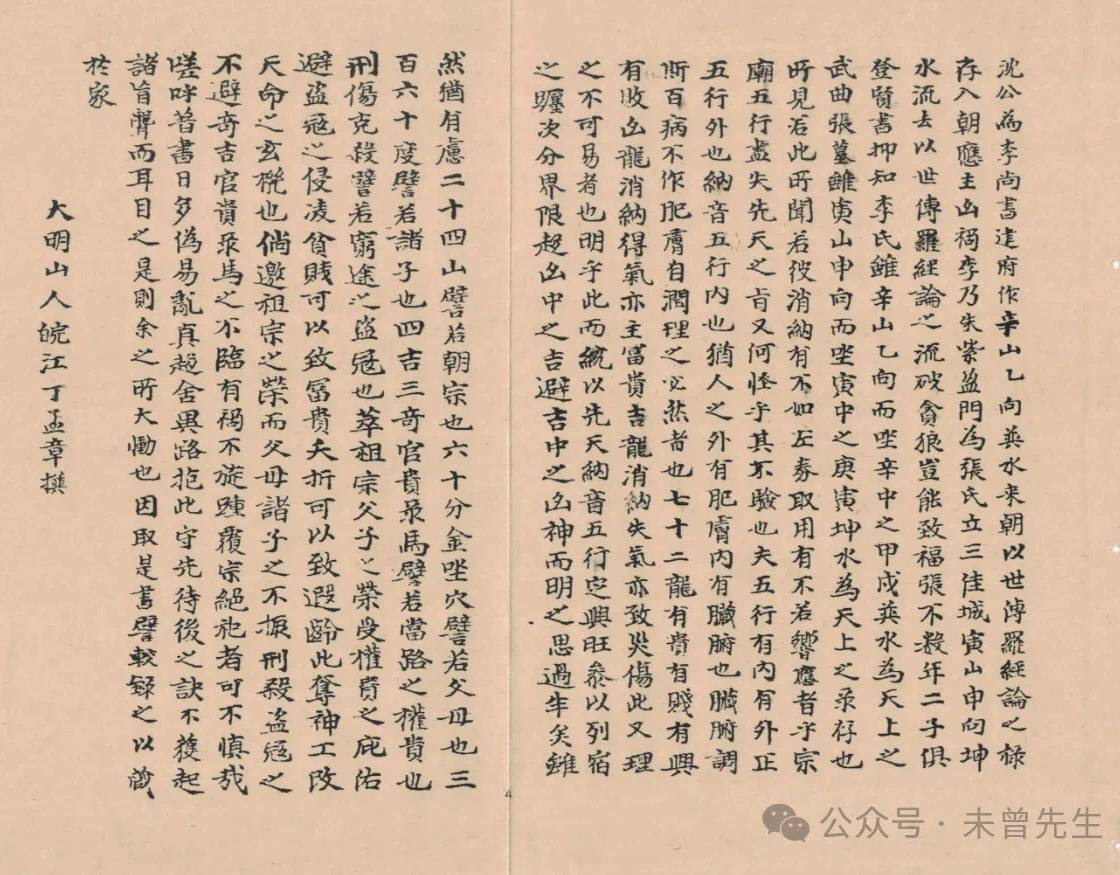 沈公為李尚書建府作辛山乙向巽水来朝以世傳羅經論之祿
存入朝應主凶禍李乃朱紫盈門為張氏立三佳城寅山申向坤
水流去以世傳羅經論之流破貪狼豈能致福張不数年二子俱
登賢書抑知李氏雖辛山乙向而坐辛中之甲戌巽水為天上之
武曲張墓雖寅山申向而坐寅中之庚寅坤水為天上之录存也
所見若此所聞若彼消納有不如左券取用有不若響應者乎宗
廟五行盡失先天之旨又何怪乎其不驗也夫五行有内有外正
五行外也納音五行内也猶人之外有肥膚内有臟腑也臟腑調
斯百病不作肥膚自潤理之必然者也七十二龍有貴有賤有興
有收凶龍消納得氣亦主富貴吉龍消納失氣亦致災傷此又理
之不可易者也明乎此而統以先天納音五行定興旺叅以列宿
之躔次分界限趨凶中之吉避吉中之凶神而明之思過半矣雖
然猶有慮二十四山譬若朝宗也六十分金坐穴譬若父母也三
百六十度譬若諸子也四吉三奇官貴录馬譬若當路之權貴也
刑傷克殺譬若窮途之盜冦也萃祖宗父子之榮受權貴之庇佑
避盜冦之侵凌貧賤可以致富貴夭折可以致遐齡此奪神工改
天命之玄機也倘邀祖宗之榮而父母諸子之不振刑殺盜冦之
不避奇吉官貴录馬之不臨有禍不旋踵覆宗絕祀者可不慎哉
嗟呼普書日多偽易亂真趨舍異路抱此守先待後之訣不獲起
諸盲聾而耳目之是則余之所大慟也因取是書譬較録之以藏
於家
大明山人皖江丁孟章撰
公众号·未曾先生